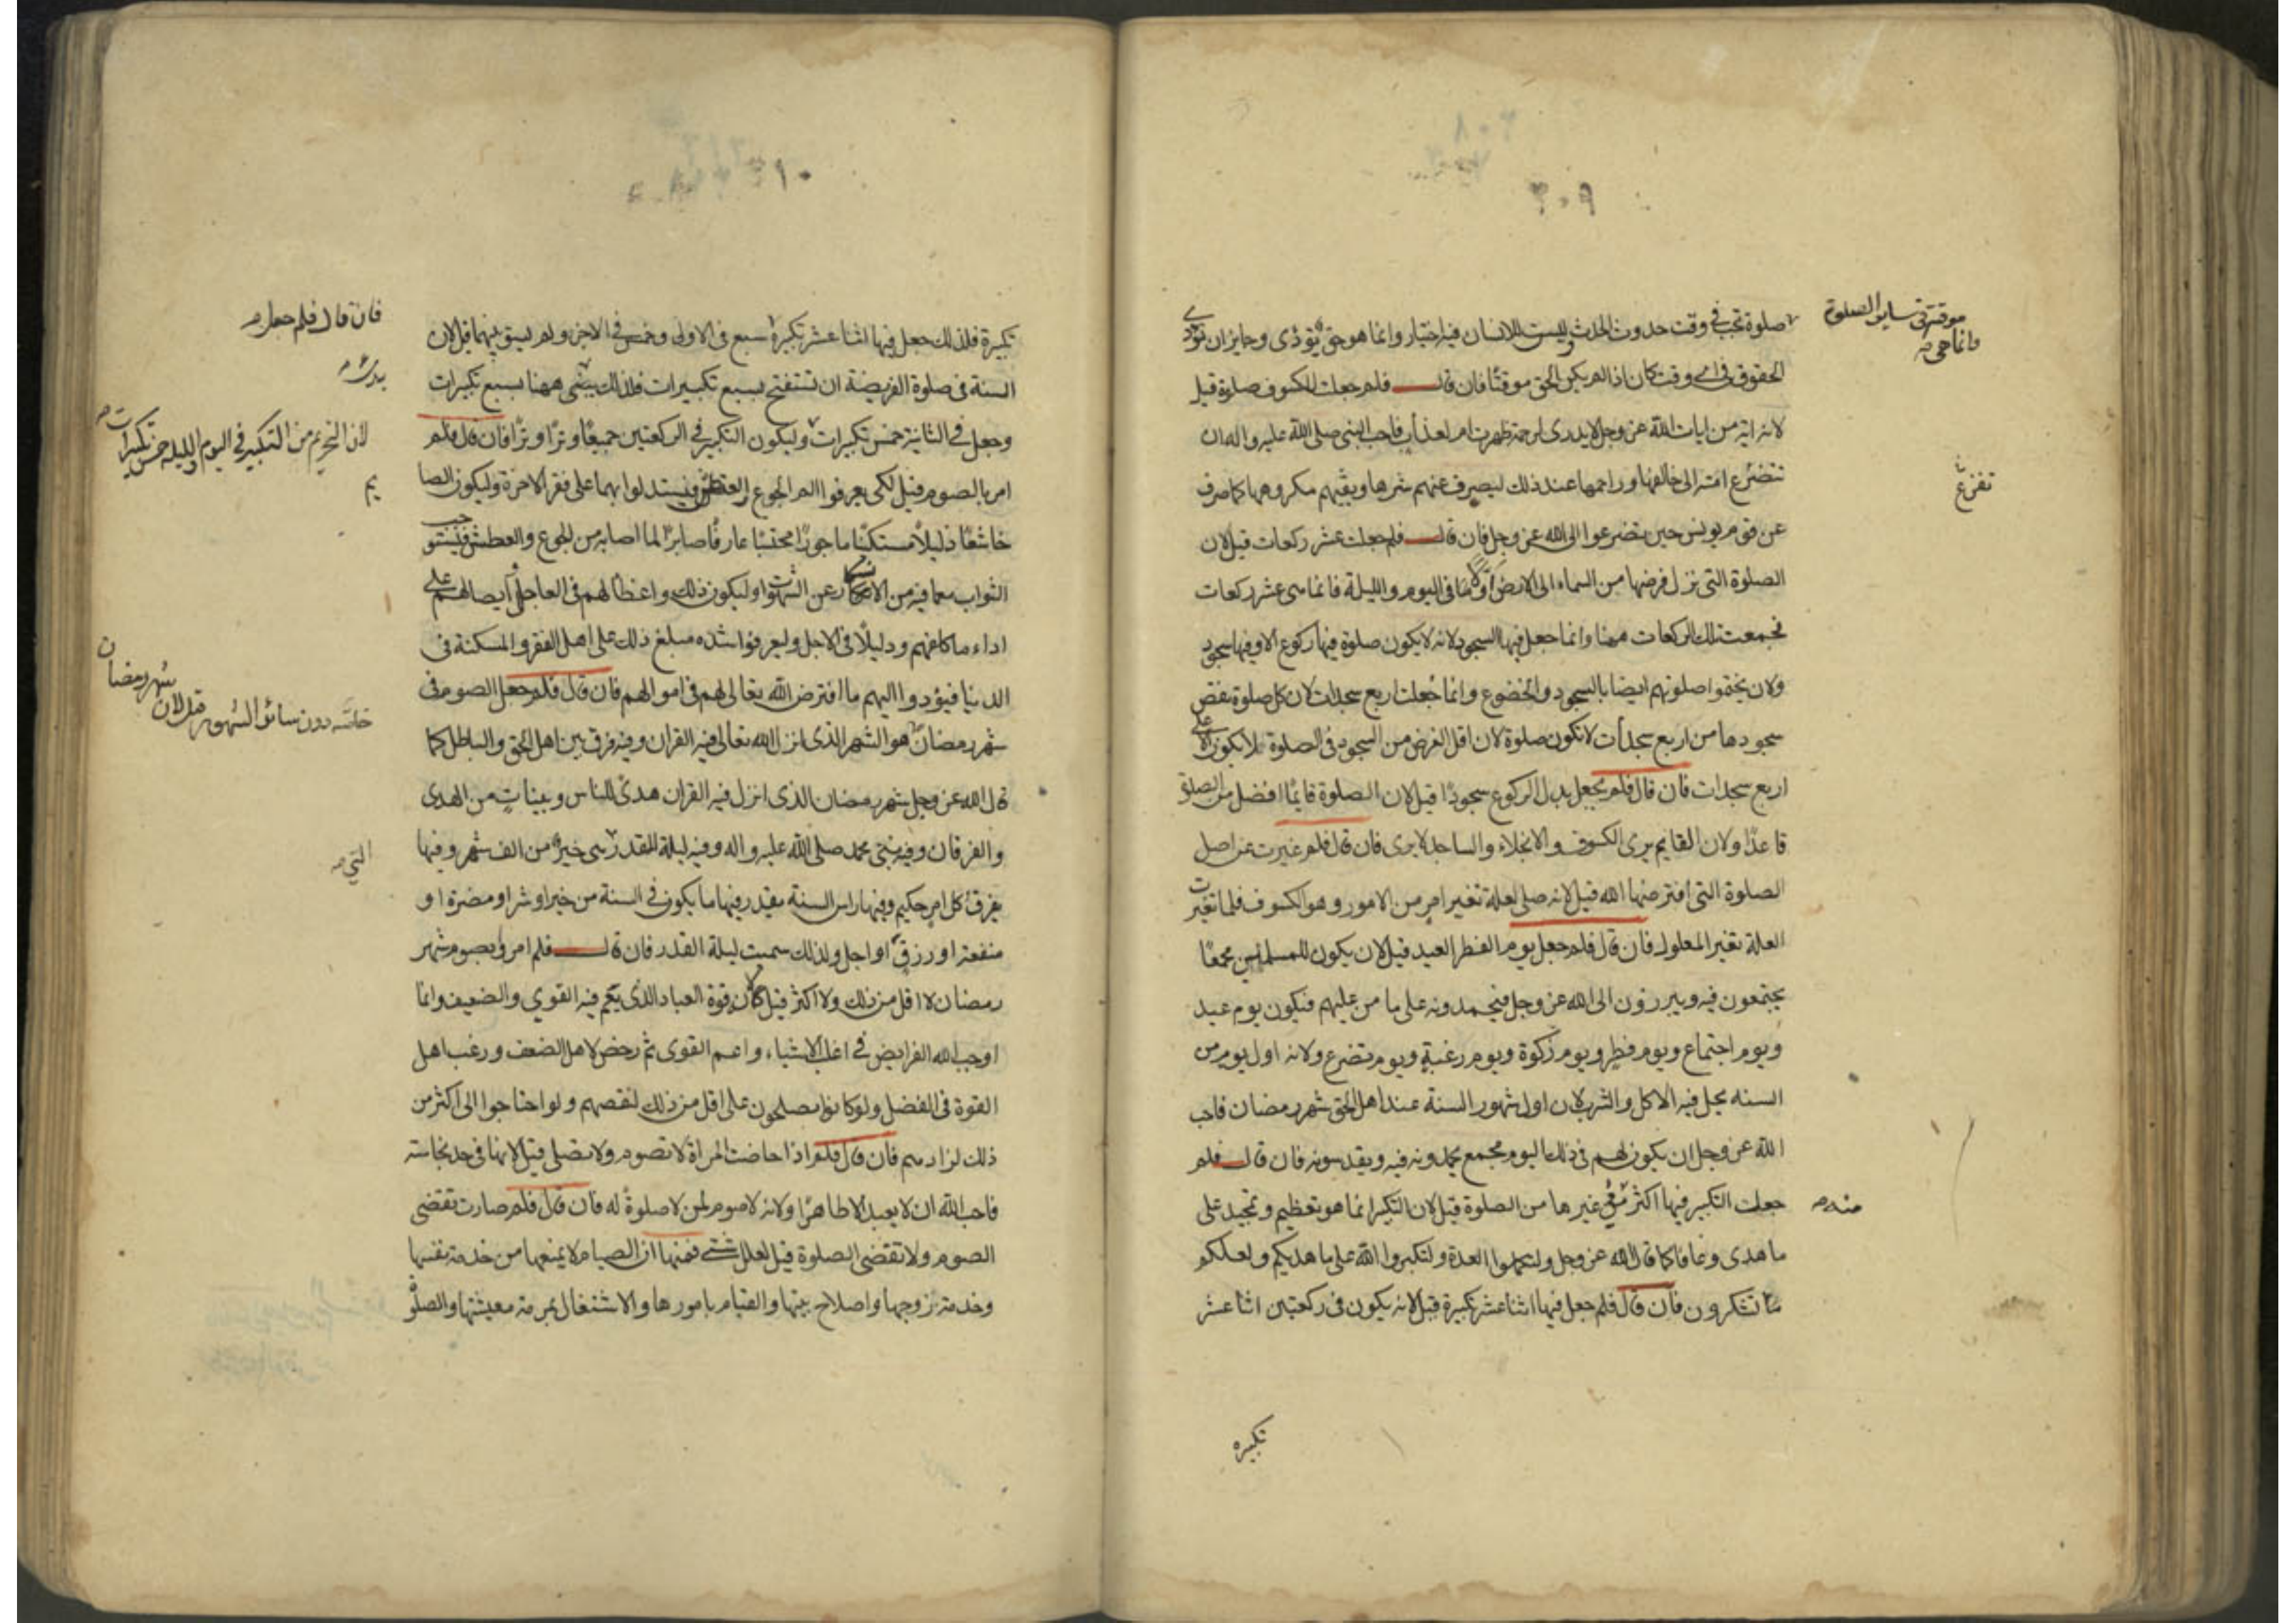 ٣٠٩
صلوة تجب فى وقت حدوث الحدث ليست للانسان فيه اختيار وانما هو حق يؤدى وجايز ان تؤدى
الحقوق فى اى وقت كان اذا لم يكن الحق موقتا فان قال فلم جعلت للكسوف صلوة قيل
لانه اية من ايات الله عز وجل لا يدرى لرحمة ظهرت ام لعذاب فاحب النبى صلى الله عليه واله ان
تتضرع امته الى خالقها وراحمها عند ذلك ليصرف عنهم شرها ويقيهم مكروهها كما صرف
عن قوم يونس حين تضرعوا الى الله عز وجل فان قال فلم جعلت عشر ركعات قيل لان
الصلوة التى نزل فرضها من السماء الى الارض اولا فى اليوم والليلة فانما هى عشر ركعات
فجمعت تلك الركعات ههنا وانما جعل فيها السجود لانه لا يكون صلوة فيها ركوع الا وفيها سجود
ولان يختموا صلوتهم ايضا بالسجود والخضوع وانما جعلت اربع سجدات لان كل صلوة نقص
سجودها من اربع سجدات لا تكون صلوة لان اقل الفرض من السجود فى الصلوة لا يكون الا على
اربع سجدات فان قال فلم لم يجعل بدل الركوع سجودا قيل لان الصلوة قايما افضل من الصلوة
قاعدا ولان القايم يرى الكسوف والانجلاء والساجد لا يرى فان قال فلم غيرت عن اصل
الصلوة التى افترضها الله قيل لانه صلى لعلة تغير امر من الامور وهو الكسوف فلما تغيرت
العلة تغير المعلول فان قال فلم جعل يوم الفطر العيد قيل لان يكون للمسلمين مجمعا
يجتمعون فيه ويبرزون الى الله عز وجل فيحمدونه على ما من عليهم فيكون يوم عيد
ويوم اجتماع ويوم فطر ويوم زكوة ويوم رغبة ويوم تضرع ولانه اول يوم من
السنه يحل فيه الاكل والشرب لان اول شهور السنة عند اهل الحق شهر رمضان فاحب
الله عز وجل ان يكون لهم فى ذلك اليوم مجمع يحمدونه فيه ويقدسونه فان قال فلم
جعلت التكبير فيها اكثر منه فى غيرها من الصلوة قيل لان التكبير انما هو تعظيم وتمجيد على
ما هدى وعافا كما قال الله عز وجل ولتكملوا العدة ولتكبروا الله على ما هديكم ولعلكم
تشكرون فان قال فلم جعل فيها اثنا عشر تكبيرة قيل لانه يكون فى ركعتين اثنا عشر
تكبيره
موقتة فى ساير الصلوة
وانما هى
تفزع
منه
٣١٠
تكبيرة فلذلك جعل فيها اثنا عشر تكبيرة سبع فى الاولى وخمس فى الاخرى ولم يسو بينهما قيل لان
السنة فى صلوة الفريضة ان تستفتح بسبع تكبيرات فلذلك ههنا بسبع تكبيرات
وجعل فى الثانية خمس تكبيرات وليكون التكبير فى الركعتين جميعا وترا وترا فان قال فلم
امر بالصوم قيل لكى يعرفوا الم الجوع والعطش فيستدلوا بهما على فقر الاخرة وليكون الصا
خاشعا ذليلا مستكينا ماجورا محتسبا عارفا صابرا لما اصابه من الجوع والعطش فيستوجب
الثواب مع ما فيه من الانكسار عن الشهوات وليكون ذلك واعظا لهم فى العاجل رايضا لهم على
اداء ما كلفهم ودليلا فى الاجل وليعرفوا شدة مبلغ ذلك على اهل الفقر والمسكنة فى
الدنيا فيؤدوا اليهم ما افترض الله تعالى لهم فى اموالهم فان قال فلم جعل الصوم فى
شهر رمضان هو الشهر الذى انزل الله تعالى فيه القران وفيه فرق بين اهل الحق والباطل كما
قال الله عز وجل شهر رمضان الذى انزل فيه القران هدى للناس وبينات من الهدى
والفرقان وفيه نبئ محمد صلى الله عليه واله وفيه ليلة القدر هى خير من الف شهر وفيها
يفرق كل امر حكيم وفيها راس السنة يقدر فيها ما يكون فى السنة من خير او شر او مضرة او
منفعة او رزق او اجل ولذلك سميت ليلة القدر فان قال فلم امروا بصوم شهر
رمضان لا اقل من ذلك ولا اكثر قيل لان قوة العباد الذى يعم فيه القوي والضعيف وانما
اوجب الله الفرايض فى اغلب الاشياء واعم القوى ثم رخص لاهل الضعف ورغب اهل
القوة فى الفضل ولو كانوا يصلحون على اقل من ذلك لنقصهم ولو احتاجوا الى اكثر من
ذلك لزادهم فان قال فلم اذا حاضت المراة لا تصوم ولا تصلى قيل لانها فى حد نجاسة
فاحب الله ان لا يعبد الا طاهرا ولانه لا صوم لمن لا صلوة له فان قال فلم صارت تقضى
الصوم ولا تقضى الصلوة قيل لعلل شتى فمنها ان الصيام لا يمنعها من خدمة نفسها
وخدمة زوجها واصلاح بيتها والقيام بامورها والاشتغال بمرمة معيشتها والصلوة
فان قال فلم جعل
لان التحريم من التكبير فى اليوم والليلة خمس تكبيرات
يم
شهر رمضان
خاصه دون سائر الشهور قيل لان
التى